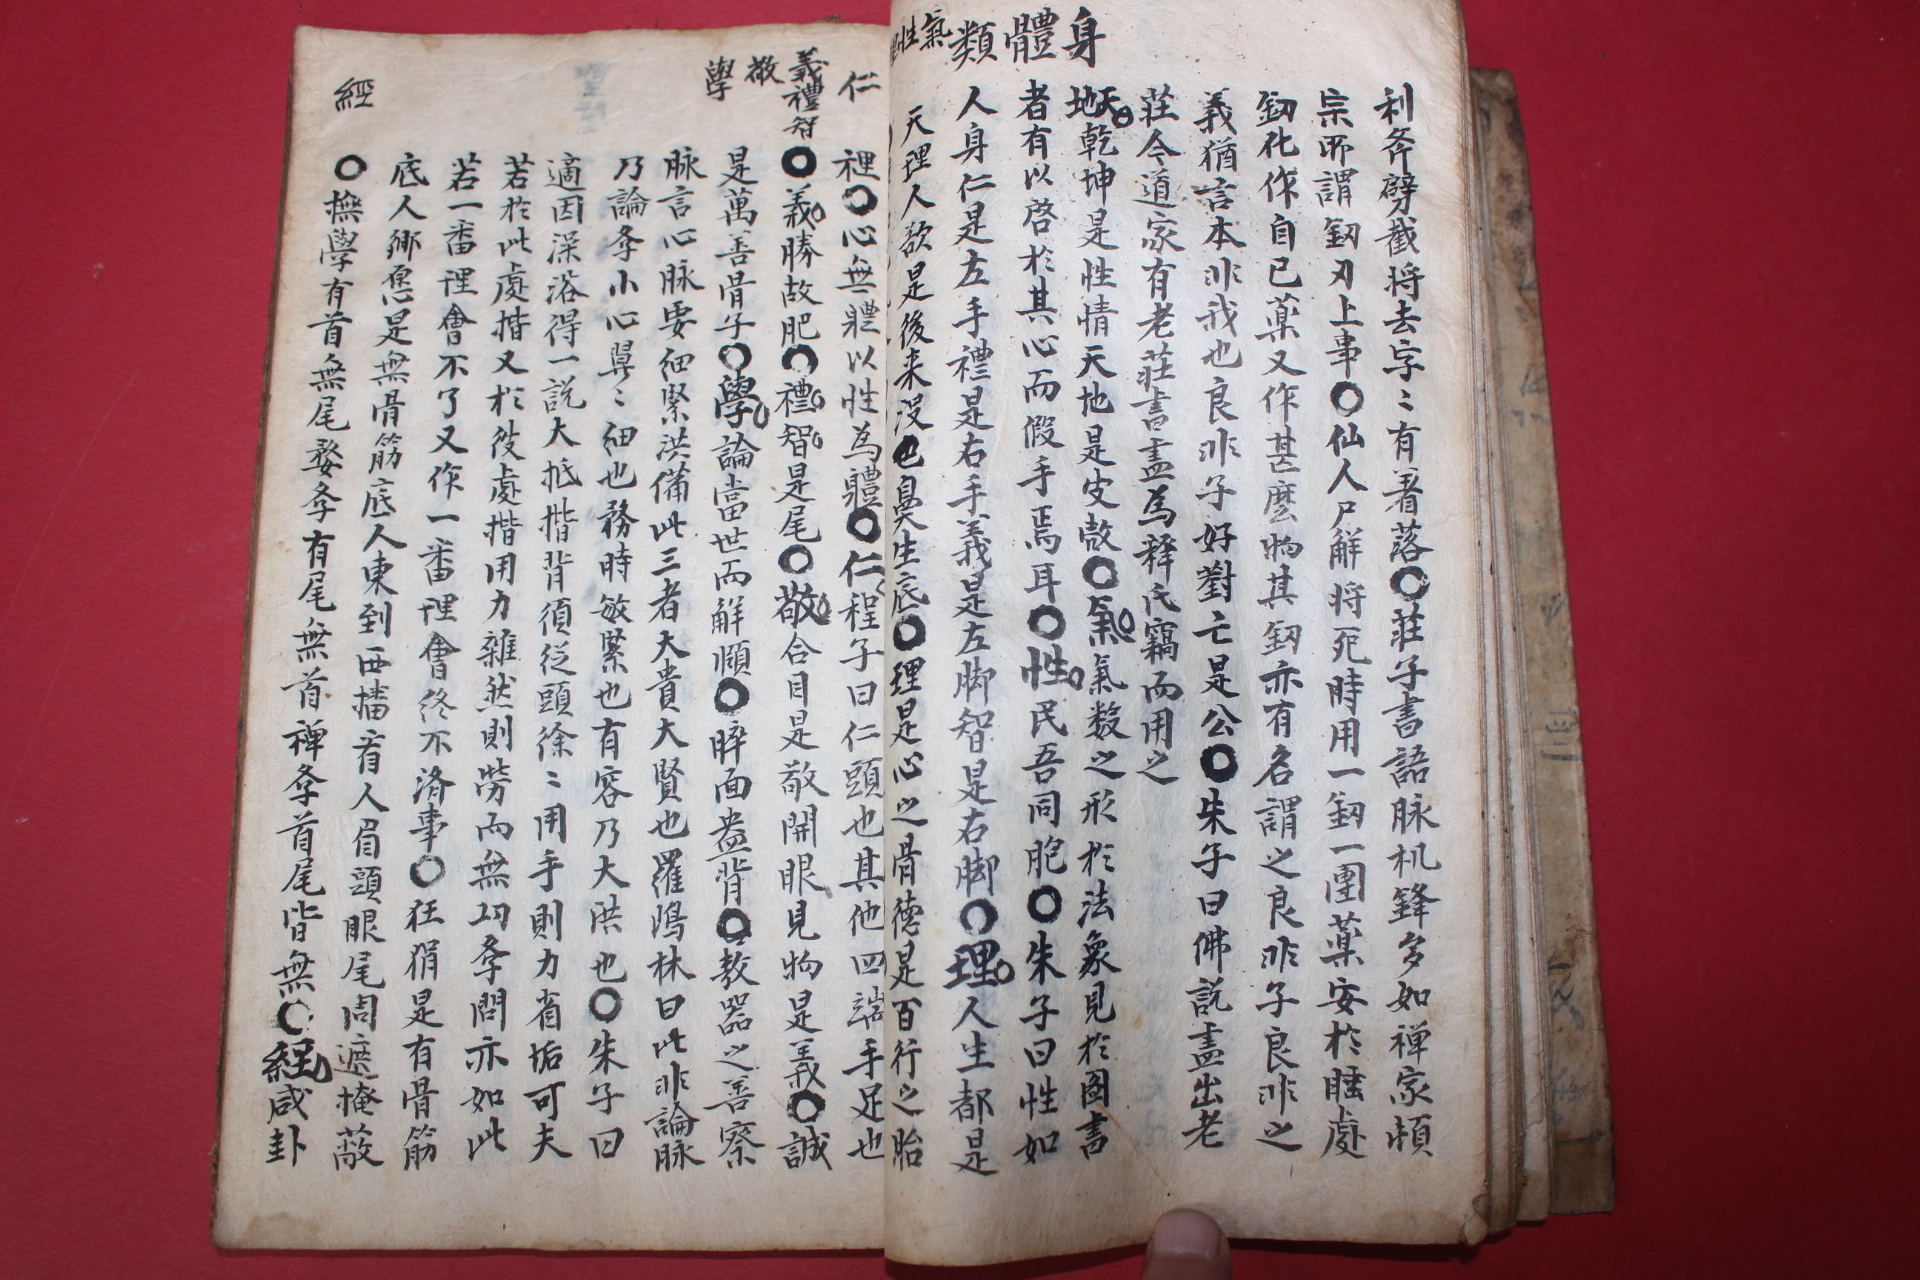 身體類
氣
性
利斧劈截將去字〻有着落〇莊子書語脉机鋒多如禪家頓
宗所謂釰刃上事〇仙人尸解將死時用一釰一團藥安於睡處
釰化作自己藥又作甚麽物其釰亦有名謂之良非子良非之
義猶言本非我也良非子好對亡是公〇朱子曰佛説盡出老
莊今道家有老莊書盡爲釋氏竊而用之
天地乾坤是性情天地是皮殼〇氣氣数之形於法象見於圖書
者有以啓於其心而假手焉耳〇性民吾同胞〇朱子曰性如
人身仁是左手禮是右手義是左脚智是右脚〇理人生都是
天理人欲是後来没巴鼻生底〇理是心之骨德是百行之胎
仁
義禮智
敬
學
經
裡〇心無軆以性爲軆〇仁程子曰仁頭也其他四端手足也
〇義勝故肥〇禮智是尾〇敬合目是敬開眼見物是義〇誠
是萬善骨子〇學論當世而解頤〇睟面盎背〇教器之善察
脉言心脉要細緊洪備此三者大貴大賢也羅鴻林曰此非論脉
乃論孝小心翼〻細也務時敏緊也有容乃大洪也〇朱子曰
適因澡浴得一説大抵揩背須從頭徐〻用手則力省垢可夫
若於此處揩又於彼處揩用力雜然則勞而無功孝問亦如此
若一番理會不了又作一番理會終不濟事〇狂狷是有骨筋
底人鄉愿是無骨筋底人東到西擂看人眉頭眼尾周遮掩蔽
〇撫學有首無尾婺孝有尾無首禪孝首尾皆無〇經咸卦